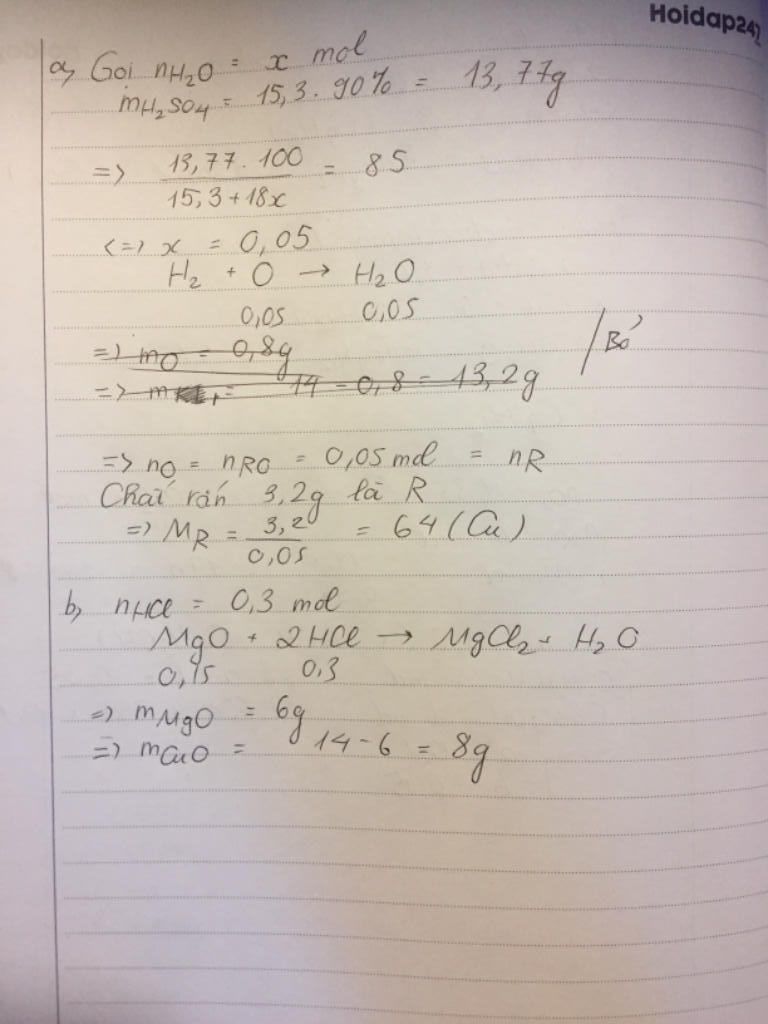 Hoidap247
a, Gọi nH₂O = x mol
mH₂SO₄ = 15,3 . 90% = 13,77g
=> 13,77 . 100 / 15,3 + 18x = 85
<=> x = 0,05
H₂ + O → H₂O
0,05 0,05
=> mO = 0,8g
/ Bỏ
=> m = 14 - 0,8 = 13,2g
=> nO = nRO = 0,05 mol = nR
Chất rắn 3,2g là R
=> MR = 3,2 / 0,05 = 64 (Cu)
b, nHCl = 0,3 mol
MgO + 2HCl → MgCl₂ + H₂O
0,15 0,3
=> mMgO = 6g
=> mCuO = 14 - 6 = 8g